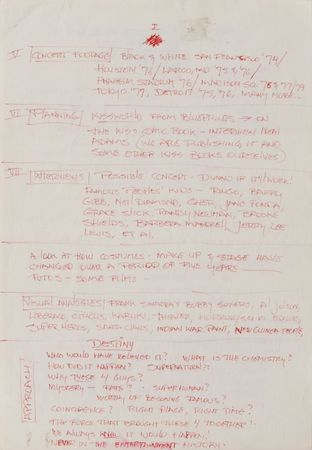 I
V CONCERT FOOTAGE BLACK & WHITE SAN FRANCISCO '74/
HOUSTON '76/ LARGO, MD '75 & '76/
ANAHEIM STADIUM '76/ MADISON SQ '76 & '77/'79
TOKYO '77, DETROIT '75, '76, MANY MORE...
VI PLANNING KISSWORLD FROM BLUEPRINTS → ON
THE KISS COMIC BOOK - INTERVIEW NEAL
ADAMS (WE ARE PUBLISHING IT AND
SOME OTHER KISS BOOKS OURSELVES)
VII INTERVIEWS POSSIBLE CONCEPT -
FAMOUS PEOPLES' KIDS - RINGO, BARRY
GIBB, NEIL DIAMOND, CHER, JANE FONDA,
GRACE SLICK, RANDY NEWMAN, BROOKE
SHIELDS, BARBARA MANDRELL, JERRY LEE
LEWIS, ET AL.
A LOOK AT HOW COSTUMES - MAKE UP & STAGE HAVE
CHANGED OVER A PERIOD OF FIVE YEARS
FOTOS - SOME FILMS -
VISUAL ANALOGIES FRANK SINATRA'S BOBBY SOXERS, AL JOLSON,
LIBERACE, CIRCUS, KABUKI, HORROR/SCI FI MOVIES,
SUPER HEROS, CLOWNS, INDIAN WAR PAINT, NEW GUINEA PEOPLE,
DESTINY
APPROACH
WHO WOULD HAVE BELIEVED IT? WHAT IS THE CHEMISTRY?
HOW DID IT HAPPEN? SUPERNATURAL?
WHY THESE 4 GUYS?
MYSTERY - FATE? - SUPERHUMAN?
WORTHY OF BECOMING FAMOUS?
COINCIDENCE? RIGHT PLACE, RIGHT TIME?
THE FORCE THAT BROUGHT THESE 4 TOGETHER!
WE ALWAYS KNEW IT WOULD HAPPEN!
NEVER IN THE ENTERTAINMENT HISTORY!